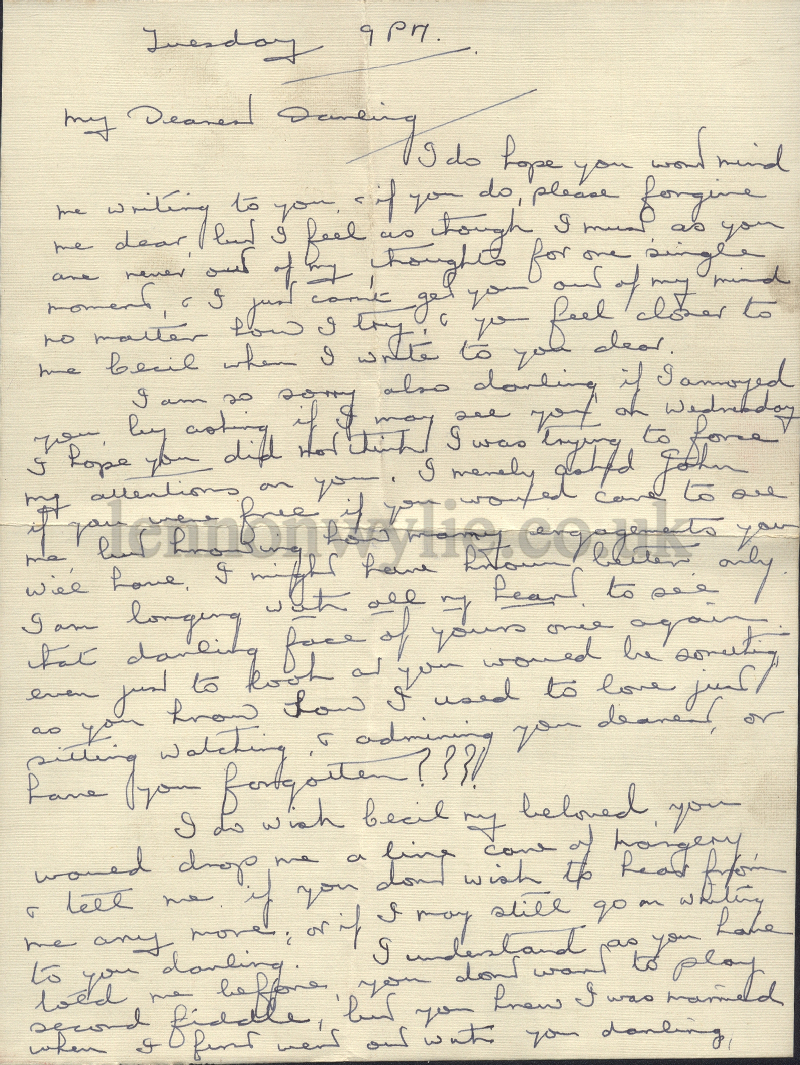 Tuesday 9 PM.
My Dearest Darling
I do hope you wont mind
me writing to you, & if you do, please forgive
me dear, but I feel as though I must as you
are never out of my thoughts for one single
moment, & I just can't get you out of my mind
no matter how I try, & you feel closer to
me Cecil when I write to you dear.
I am so sorry also darling, if I annoyed
you, by asking if I may see you on Wednesday
I hope you did not think I was trying to force
my attentions on you. I merely asked John
if you were free if you would care to see
me, but knowing how many engagements you
will have, I might have known better only
I am longing with all my heart to see
that darling face of yours once again
even just to look at you would be something,
as you know how I used to love just
sitting watching, & admiring you dearest, or
have you forgotten????
I do wish Cecil my beloved, you
would drop me a line care of Margery
& tell me if you dont wish to hear from
me any more, or if I may still go on writing
to you darling. I understand as you have
told me before, you dont want to play
second fiddle, but you knew I was married
when I first went out with you darling,
lennonwylie.co.uk